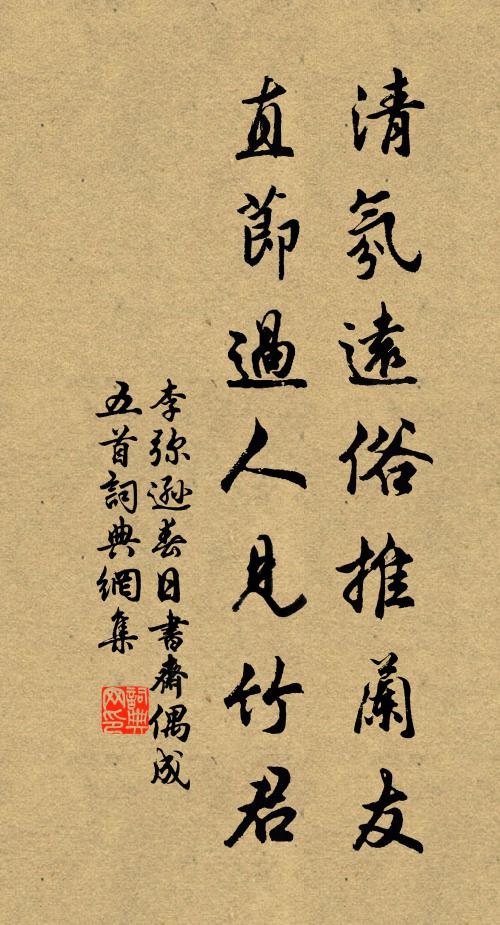 清氛遠俗推蘭友
直節過人見竹君
李弥遜春日書齋偶成
五首詞典網集
詞典
网印